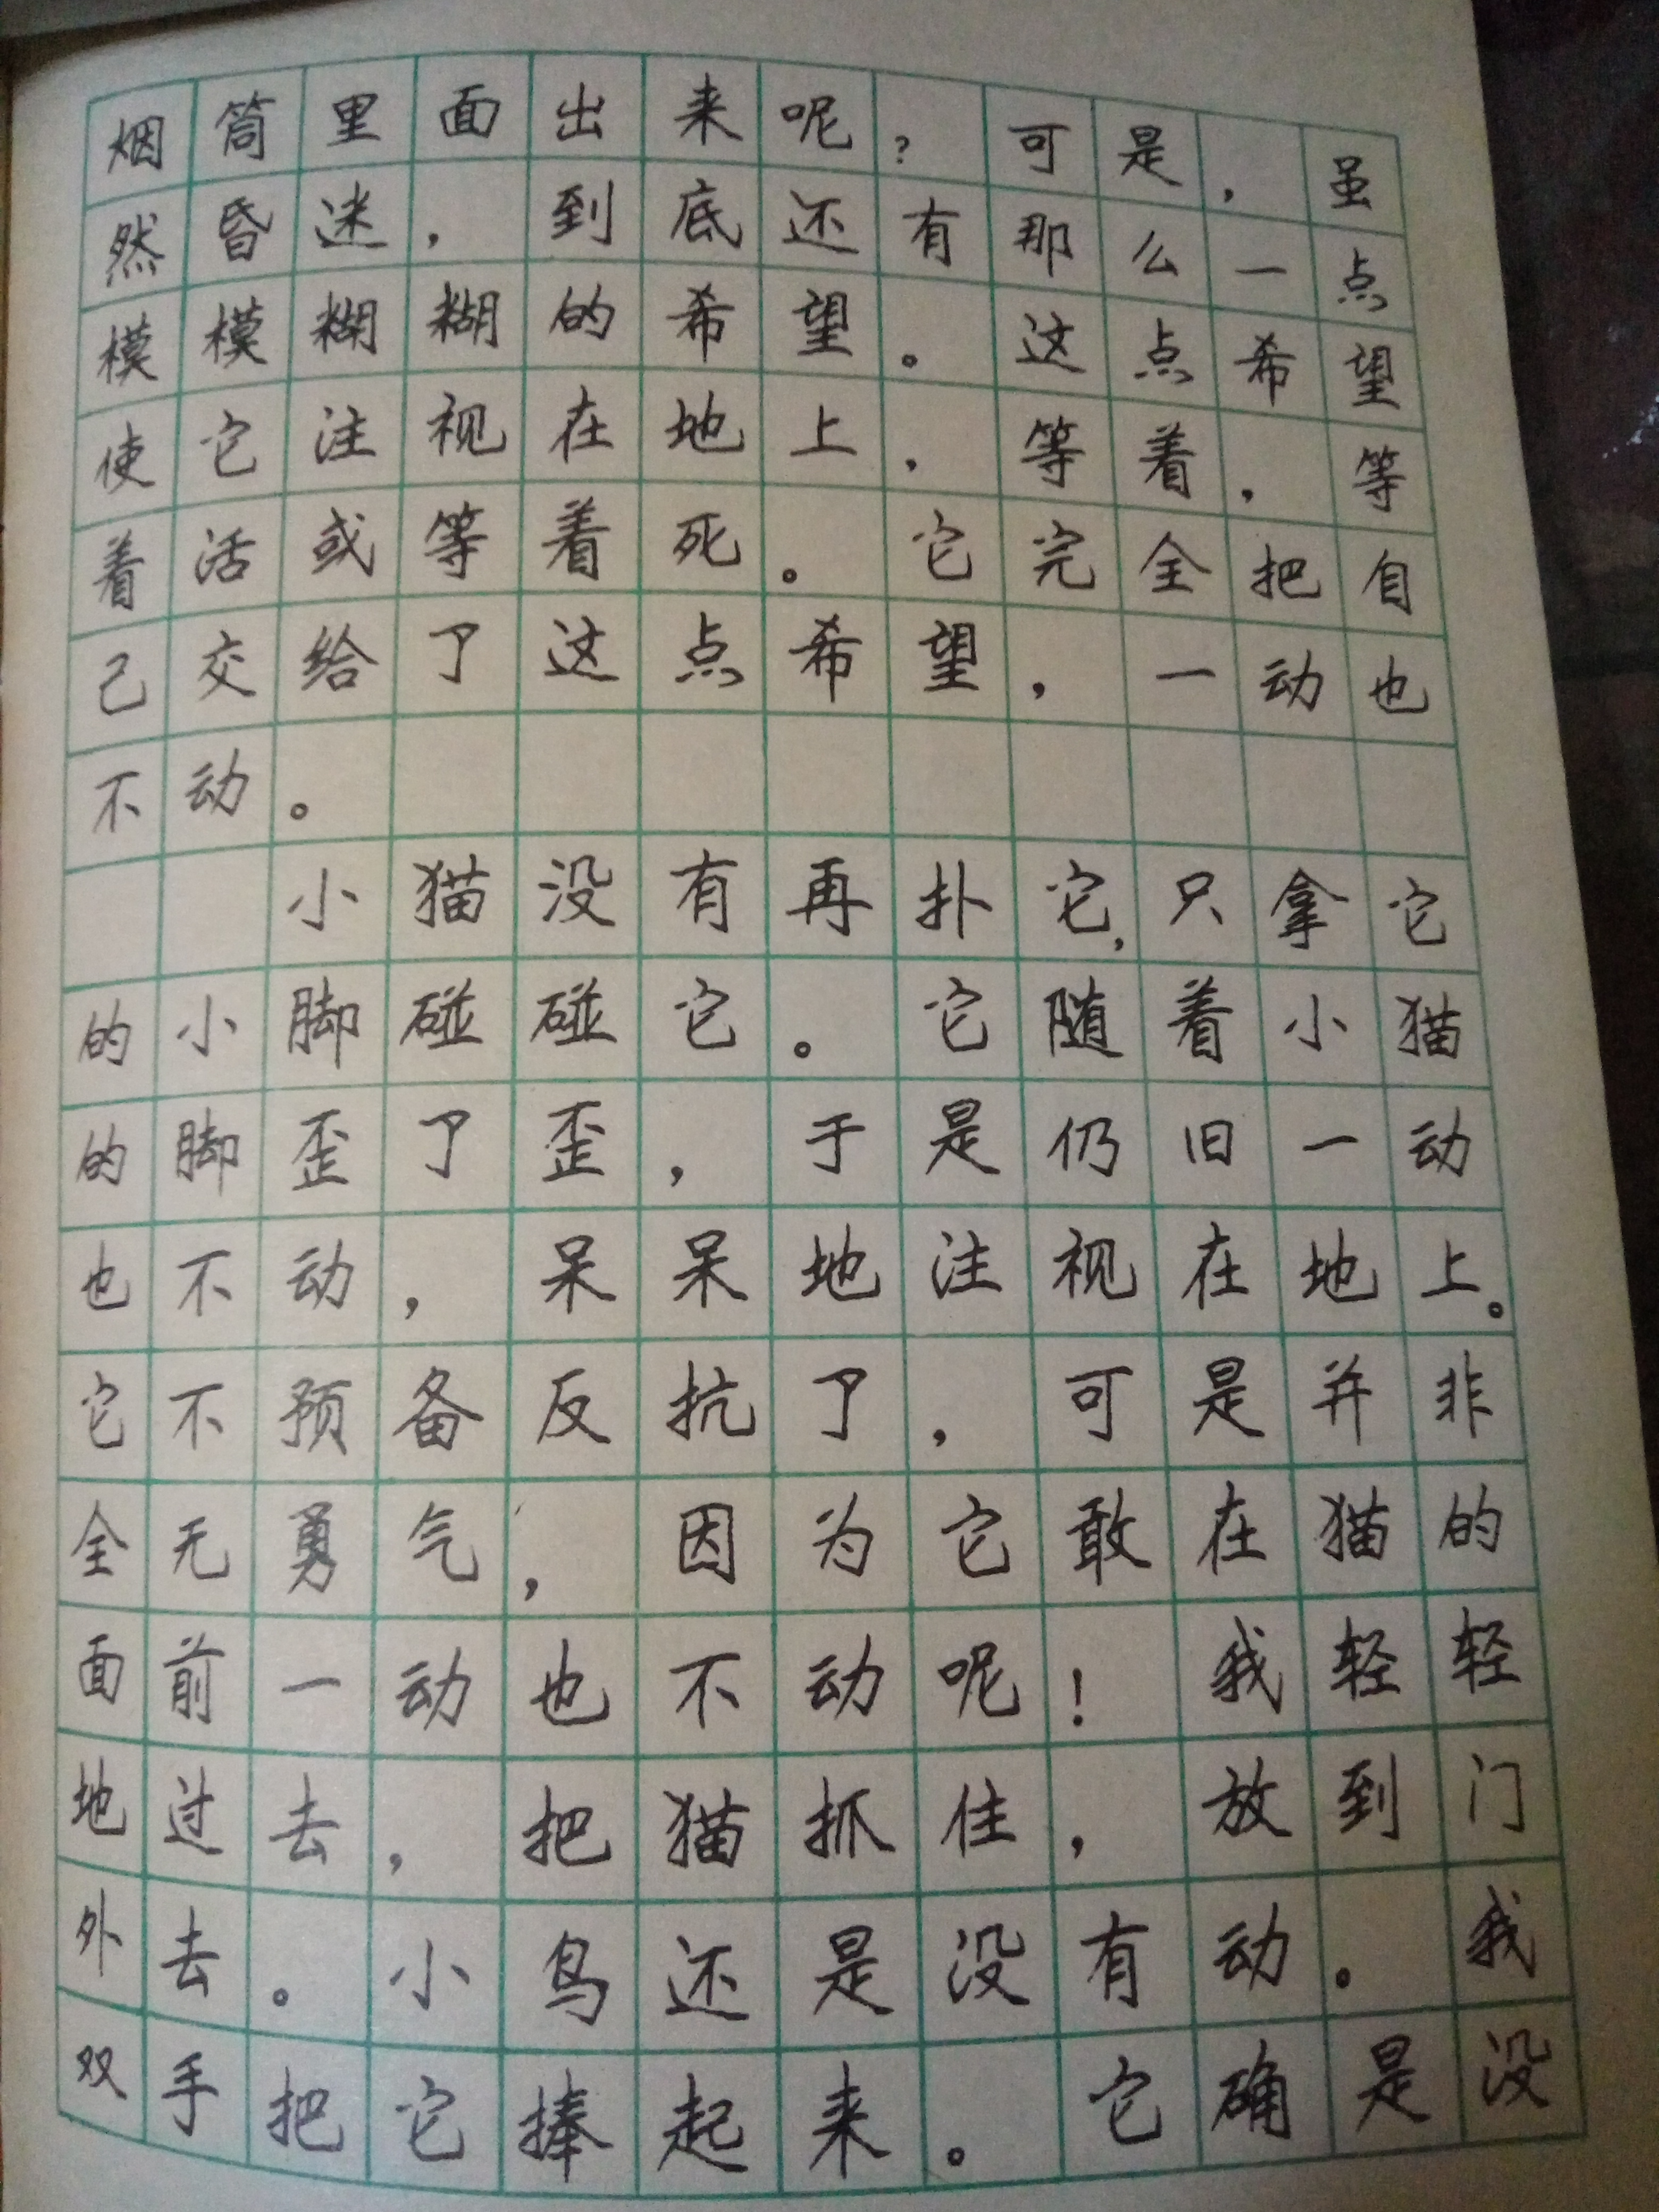 烟筒里面出来呢？可是，虽
然昏迷，到底还有那么一点
模模糊糊的希望。这点希望
使它注视在地上，等着，等
着活或等着死。它完全把自
己交给了这点希望，一动也
不动。
小猫没有再扑它，只拿它
的小脚碰碰它。它随着小猫
的脚歪了歪，于是仍旧一动
也不动，呆呆地注视在地上。
它不预备反抗了，可是并非
全无勇气，因为它敢在猫的
面前一动也不动呢！我轻轻
地过去，把猫抓住，放到门
外去。小鸟还是没有动。我
双手把它捧起来。它确是没